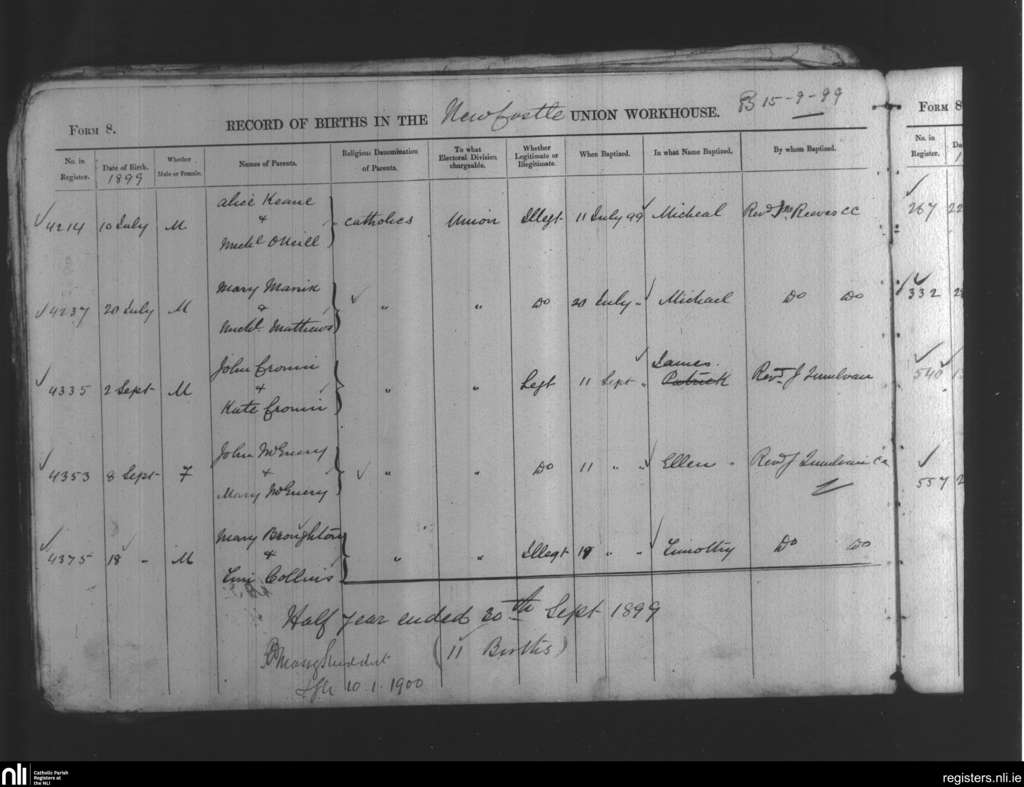 B 15-9-99
FORM 8.
RECORD OF BIRTHS IN THE Newcastle UNION WORKHOUSE.
FORM 8
No. in Register.
Date of Birth. 1899
Whether Male or Female.
Names of Parents.
Religious Denomination of Parents.
To what Electoral Division chargeable.
Whether Legitimate or Illegitimate.
When Baptized.
In what Name Baptized.
By whom Baptized.
No. in Register.
4214 10 July M Alice Keane & Michl O'Neill Catholics Union Illegt 11 July 99 Micheal Revd Jno Reeves CC
267 22
4237 20 July M Mary & Michl Mathews " " Do 20 July " Michael Do Do
332
4335 2 Sept M John Cronin & Kate Cronin " " Legt 11 Sept " James Patrick Revd J
540
4353 8 Sept F John McEnery & Mary McEnery " " Do 11 " " Ellen " Revd J
557 2
4375 18 " M Mary Broughton & Collins " " Illegt 18 " " Timothy Do Do
Half year ended 30th Sept 1899
(11 Births)
10.1.1900
nli
Catholic Parish
Registers at
the NLI
registers.nli.ie